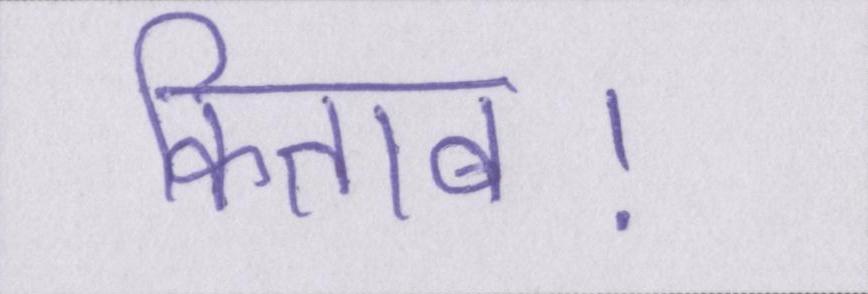 किताब!